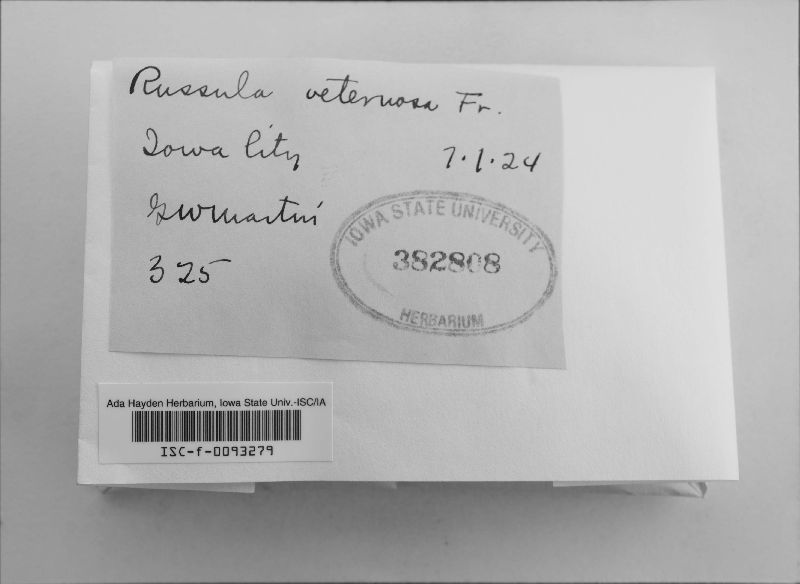 Russula veternosa Fr.
Iowa City 7.1.24
GWMartin
325
IOWA STATE UNIVERSITY
382808
HERBARIUM
Ada Hayden Herbarium, Iowa State Univ.-ISC/IA
ISC-f-0093279